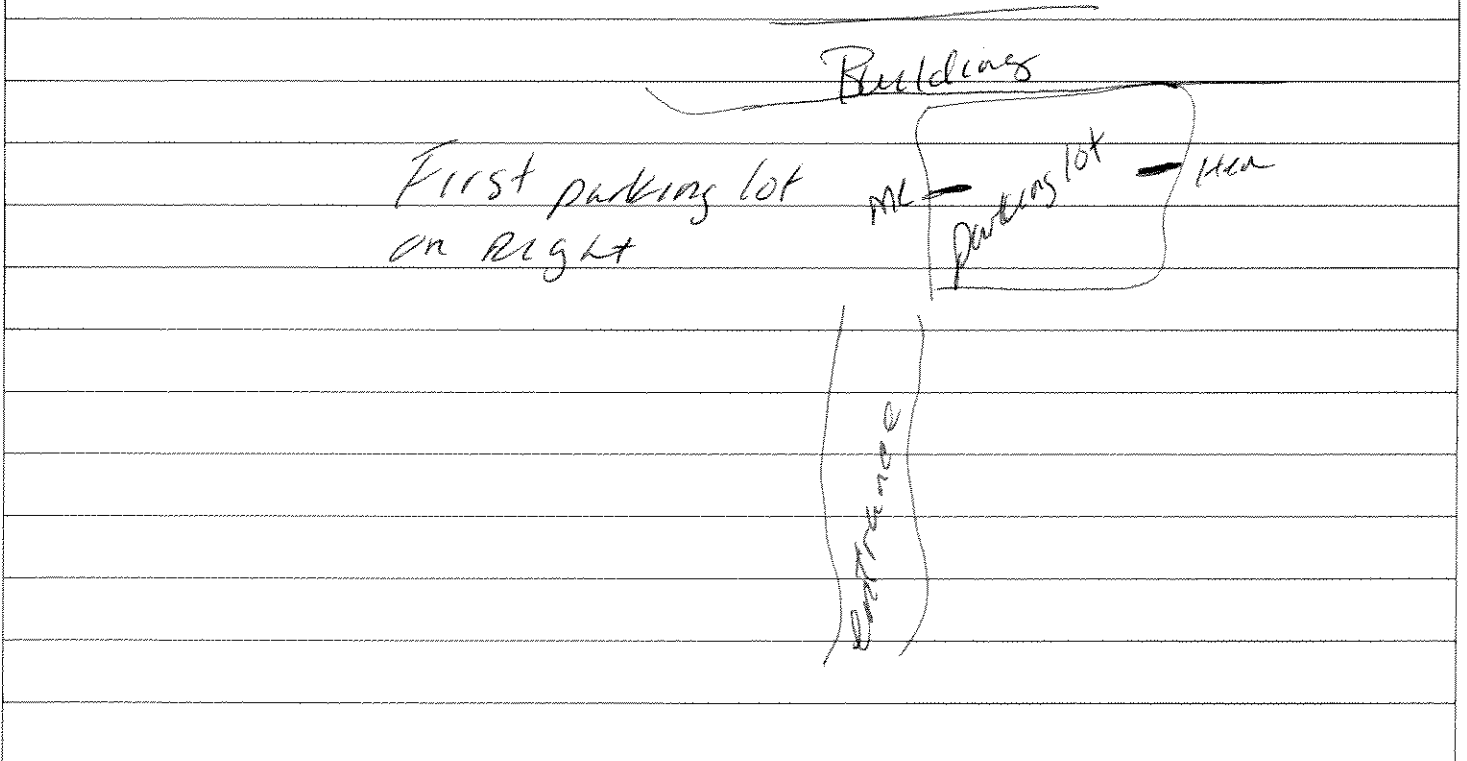 Building
First parking lot
on Right
me
parking lot
Her
entrance